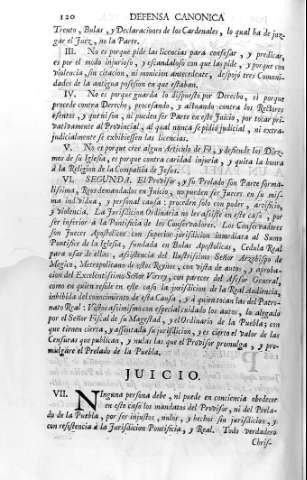 120 DEFENSA CANONICA
Trento, Bulas, y Declaraciones de los Cardenales, lo qual ha de juz-
gar el Juez, no la Parte.
III. No es porque pide las licencias para confesar, y predicar,
es por el modo injurioso, y escandaloso con que las pide, y porque con
violencia, sin citacion, ni monicion antecedente, despojò tres Comuni-
dades de la antigua possesion en que estaban.
IV. No es porque guarda lo dispuesto por Derecho, es porque
procede contra Derecho, procesando, y actuando contra los Rectores
esentos, y que no son, ni pueden ser Parte en este Juicio, por tocar pri-
vativamente al Provincial, al qual nunca se pidiò judicial, ni extra-
judicialmente se exhibiessen las licencias.
V. No es porque cree algun Articulo de Fè, y defiende los Diez-
mos de su Iglesia, es porque contra caridad injuria, y quita la honra
à la Religion de la Compañia de Jesus.
VI. SEGUNDA. El Provisor, y su Prelado son Parte forma-
lissima, Reos demandados en Juicio, no pueden ser Jueces en su mis-
ma individua, y personal causa: proceden solo con poder, artificio,
y violencia. La Jurisdicion Ordinaria no les assiste en este caso, por
ser inferior à la Pontificia de los Conservadores. Los Conservadores
son Jueces Apostolicos con superior jurisdicion inmediata al Sumo
Pontifice de la Iglesia, fundada en Bulas Apostolicas, Cedula Real
para usar de ellas, assistencia del Ilustrissimo Señor Arzobispo de
Megico, Metropolitano de estos Reynos, con vista de autos, y aproba-
cion del Excelentissimo Señor Virrey, con parecer del Assesor General,
como en quien reside en este caso la jurisdicion de la Real Audiencia,
inhibida del conocimiento de esta Causa, y à quien tocan las del Patro-
nato Real: Vistos assimismo con especial cuidado los autos, lo alegado
por el Señor Fiscal de su Magestad, y el Ordinario de la Puebla; con
que tienen cierta, y assentada su jurisdicion, y es cierto el valor de las
Censuras que publican, y nulas las que el Provisor promulga, y pro-
mulgàre el Prelado de la Puebla.
JUICIO.
VII. NInguna persona debe, ni puede en conciencia obedecer
en este caso los mandatos del Provisor, ni del Prela-
do de la Puebla, por ser injustos, nulos, y hechos sin jurisdicion, y
con resistencia à la Jurisdicion Pontificia, y Real. Todo verdadero
Chris-